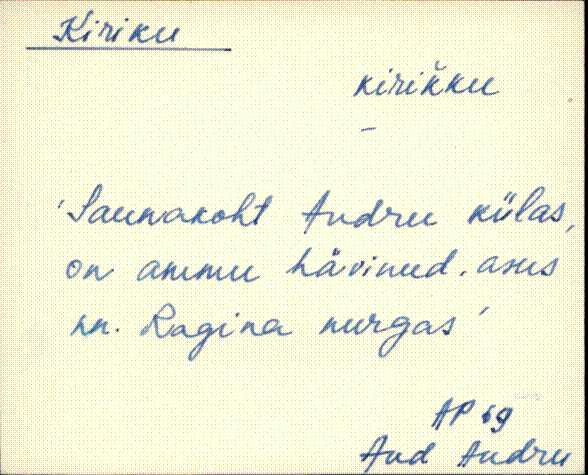 Kiriku
kirik̆ku
–
'Saunakoht Audru külas,
on ammu hävinud. asus
nn. Ragina nurgas'
AP 69
Aud Audru